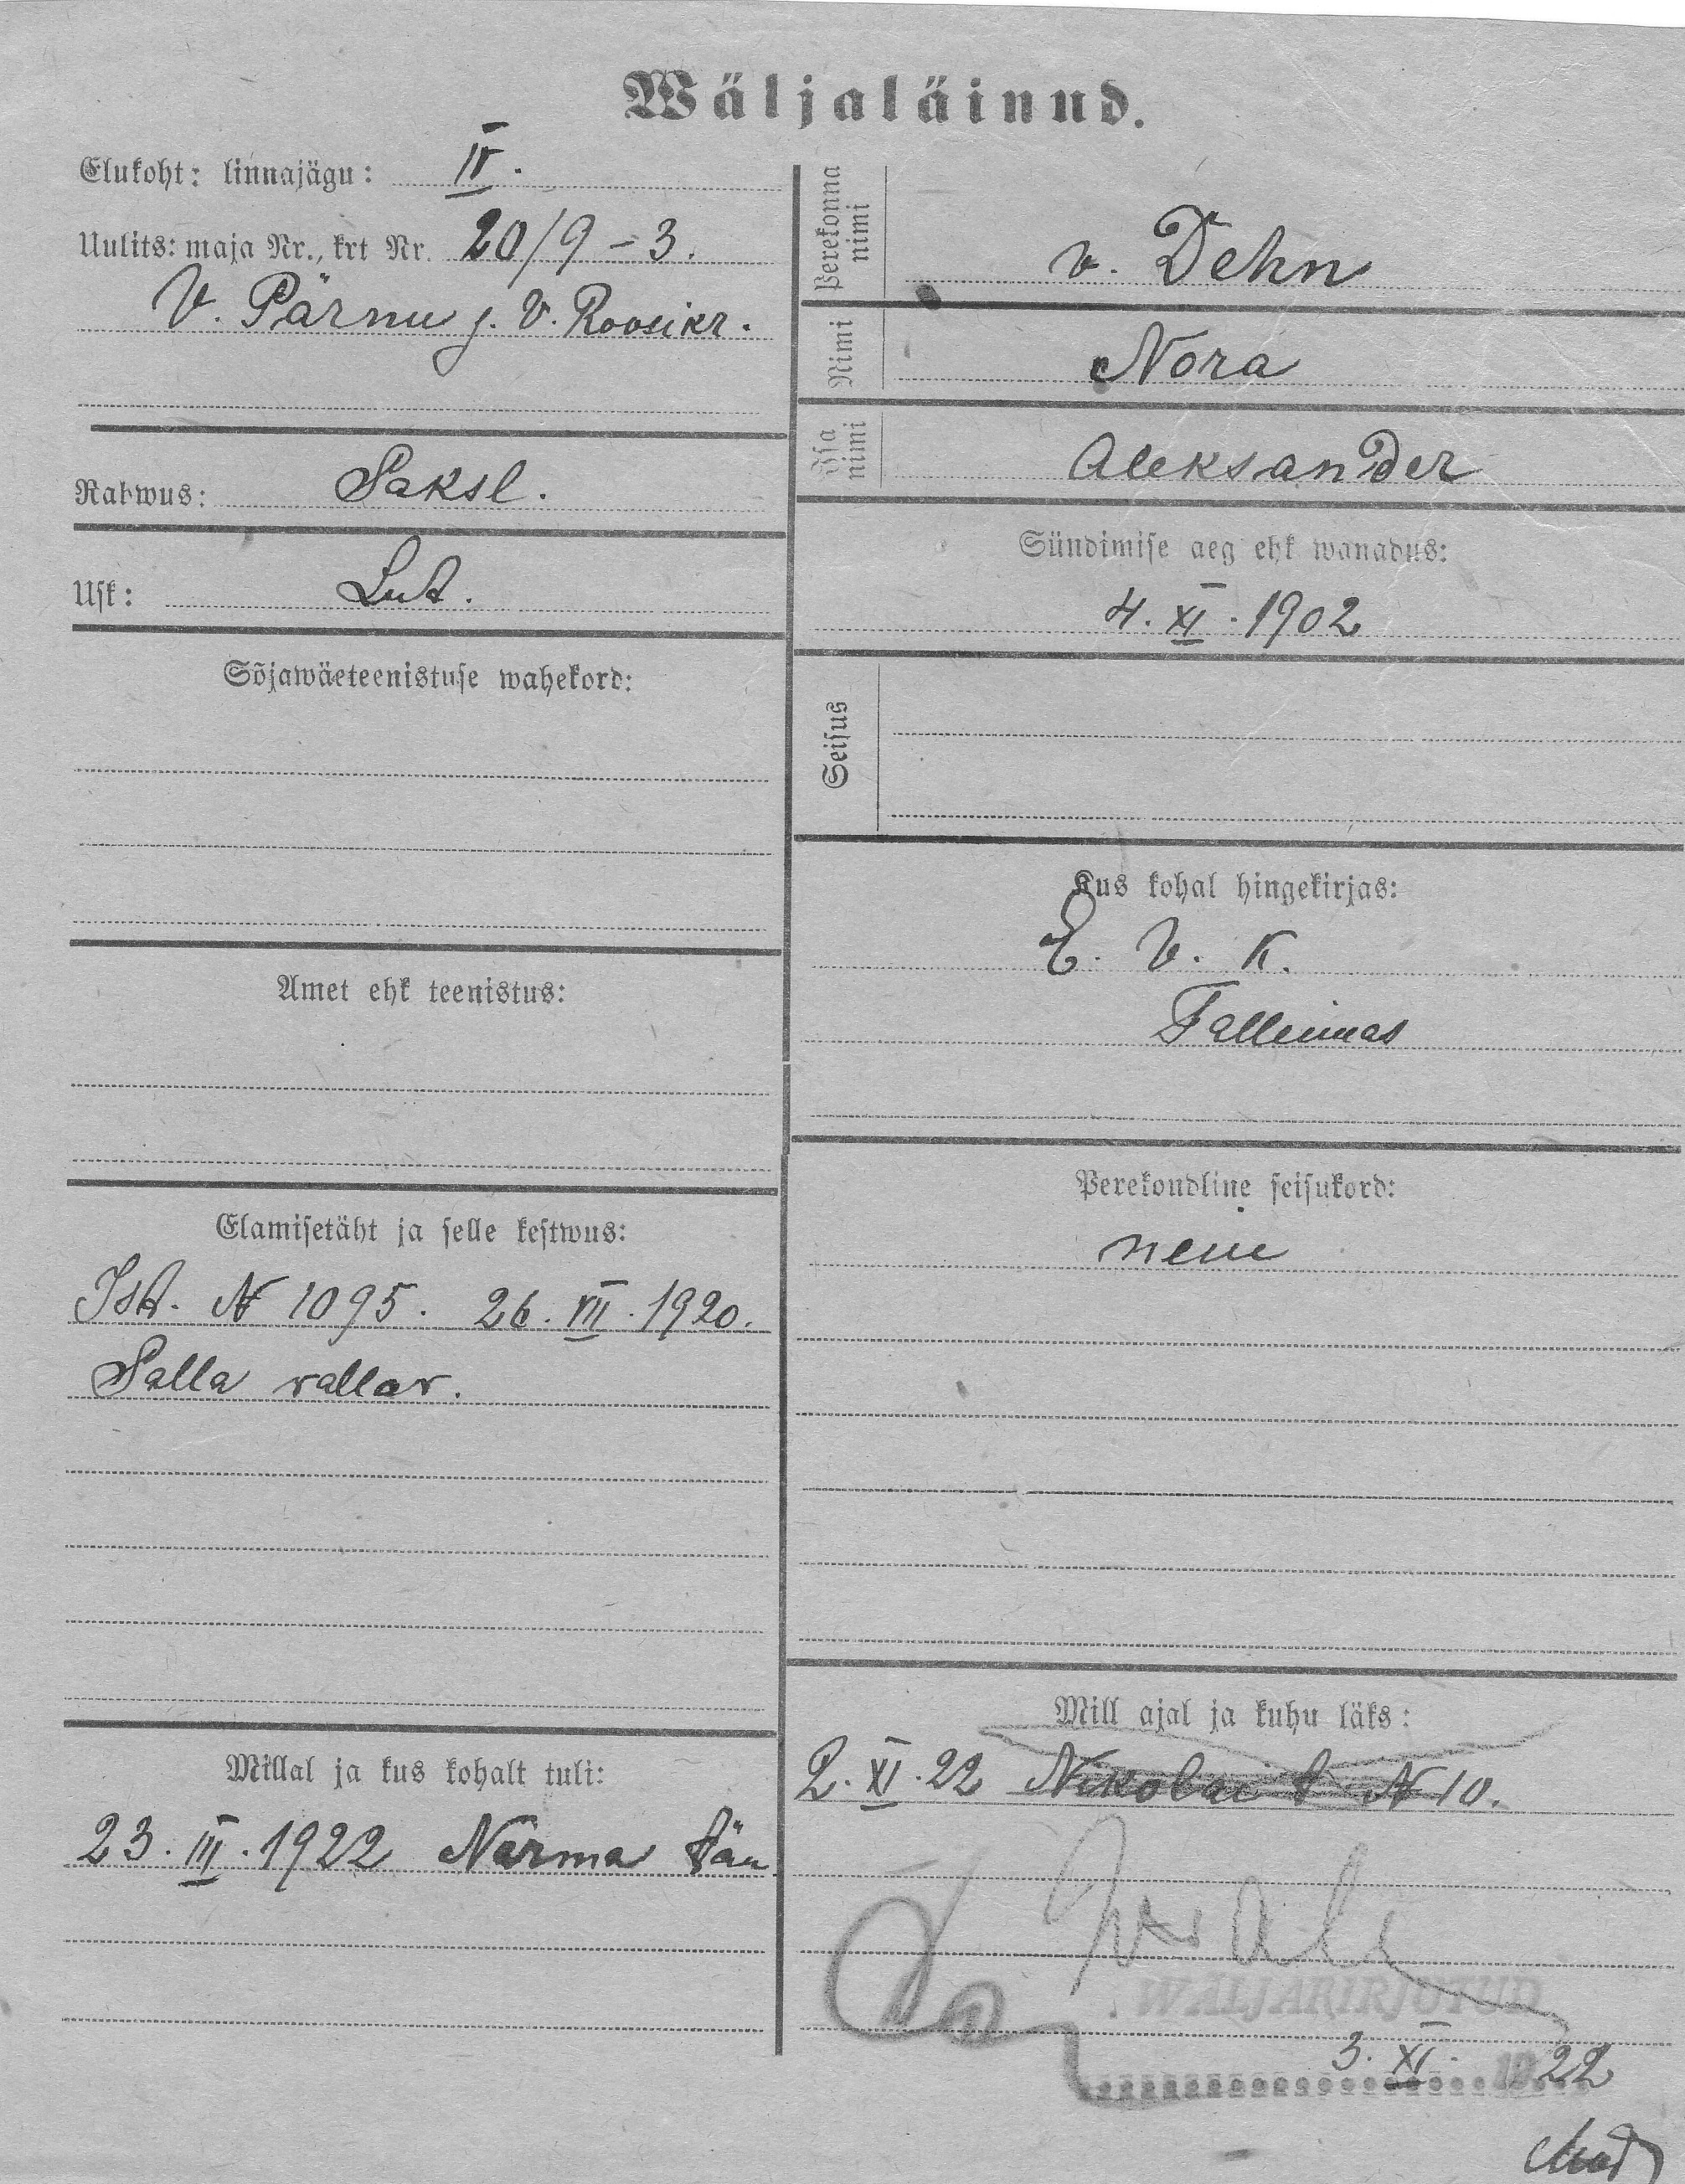 Wäljaläinud.
Elukoht: linnajägu: IV.
Uulits: maja Nr., krt Nr. 20/9 – 3.
V. Pärnu j. V. Roosikr.
Rahwus: Saksl.
Usk: Lut.
Sõjawäeteenistuse wahekord:
Amet ehk teenistus:
Elamisetäht ja selle kestwus:
Ist. № 1095. 26. VII. 1920.
Salla vallav.
Millal ja kus kohalt tuli:
23. III. 1922 Narma tän
Perekonna
nimi
v. Dehn
Nimi
Nora
Isa
nimi
Aleksander
Sündimise aeg ehk wanadus:
4. XI. 1902
Seisus
Kus kohal hingekirjas:
E. V. K.
Tallinnas
Perekondline seisukord:
neiu
Mill ajal ja kuhu läks:
2. XI. 22 Nikolai t № 10.
WÄLJAKIRJUTUD
3. XI. 1922